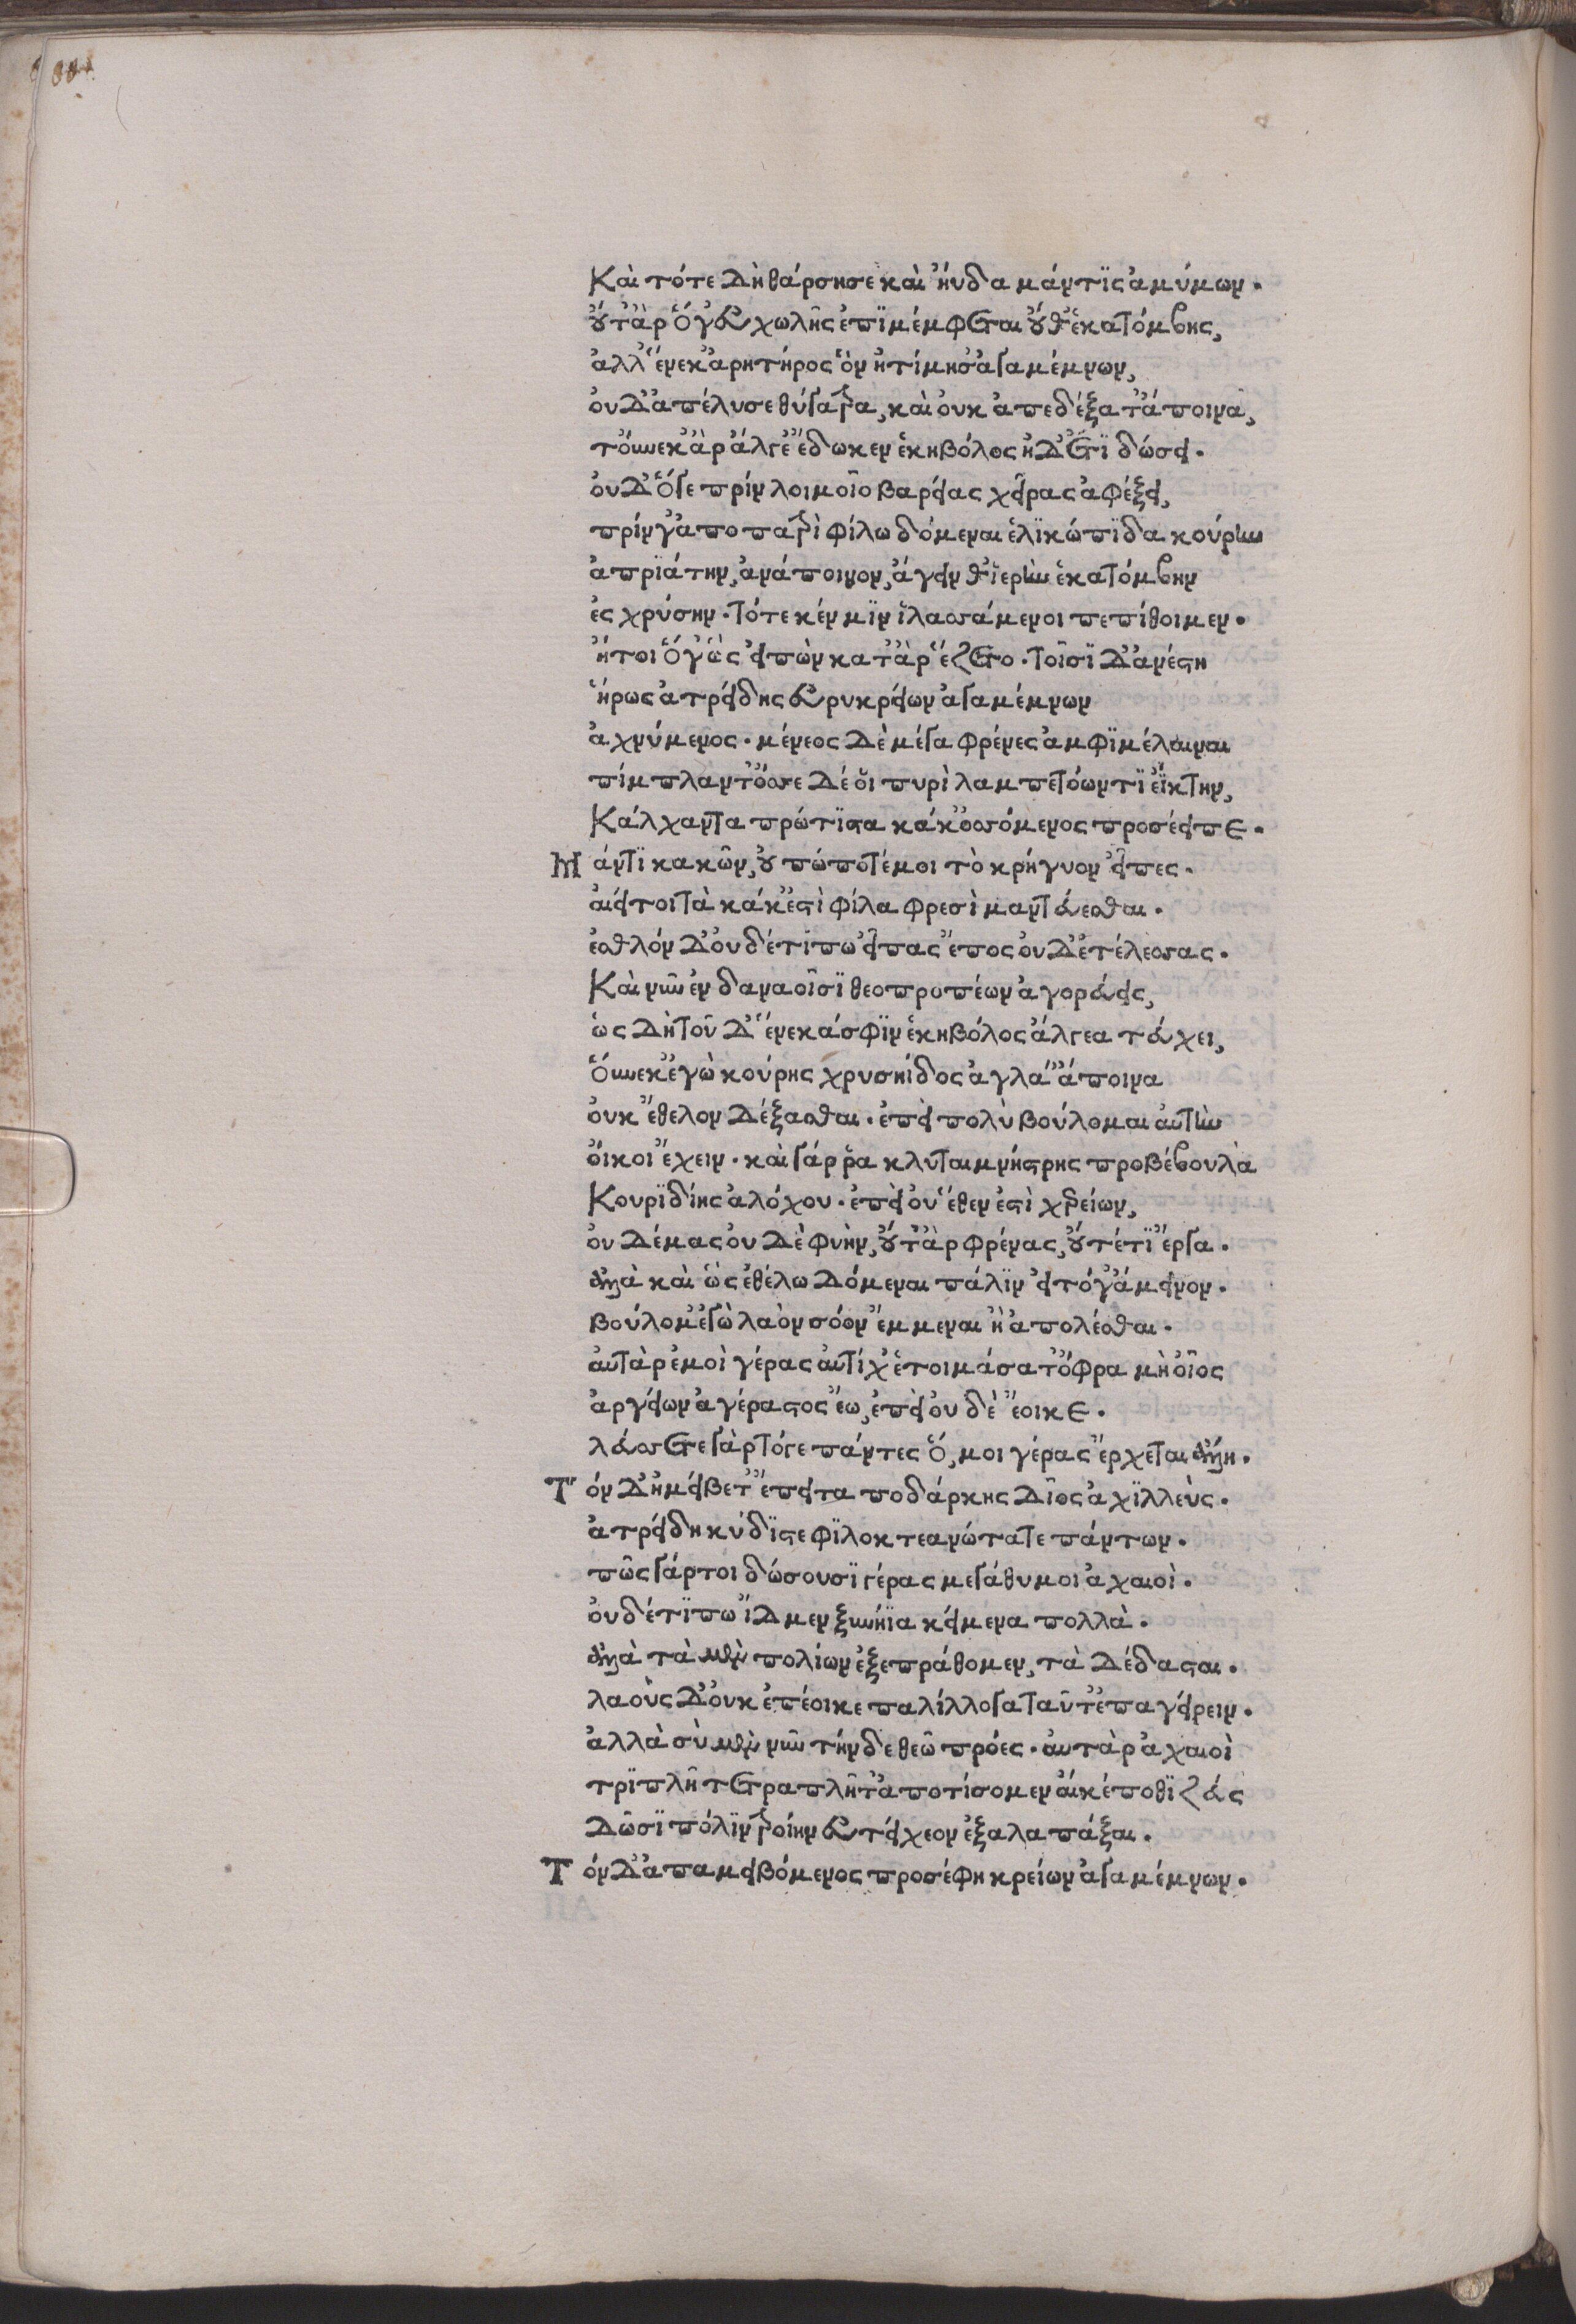 Καὶ τότε δὴ θάρσησε καὶ ἠύδα μάντις ἀμύμων.
οὔτ' ἂρ ὅγ' εὐχωλῆς ἐπιμέμφεται οὔθ' ἑκατόμβης,
ἀλλ' ἕνεκ' ἀρητῆρος ὃν ἠτίμησ' ἀγαμέμνων,
οὐδ' ἀπέλυσε θύγατρα, καὶ οὐκ ἀπεδέξατ' ἄποινα,
τοὔνεκ' ἂρ ἄλγε' ἔδωκεν ἑκηβόλος ἠδ' ἔτι δώσει.
οὐδ' ὅγε πρὶν λοιμοῖο βαρείας χεῖρας ἀφέξει,
πρίν γ' ἀπὸ πατρὶ φίλω δόμεναι ἑλικώπιδα κούρην
ἀπριάτην, ἀνάποινον, ἄγειν θ' ἱερὴν ἑκατόμβην
ἐς χρύσην. τότε κέν μιν ἱλασσάμενοι πεπίθοιμεν.
ἤτοι ὅγ' ὣς εἰπὼν κατ' ἂρ ἕζετο. τοῖσι δ' ἀνέστη
ἥρως ἀτρείδης εὐρυκρείων ἀγαμέμνων
ἀχνύμενος. μένεος δὲ μέγα φρένες ἀμφιμέλαιναι
πίμπλαντ' ὄσσε δέ οἱ πυρὶ λαμπετόωντι ἐΐκτην,
Κάλχαντα πρώτιστα κάκ' ὀσσόμενος προσέειπε.
Μάντι κακῶν, οὐ πώποτέ μοι τὸ κρήγυον εἶπες.
αἰεί τοι τὰ κάκ' ἐστὶ φίλα φρεσὶ μαντεύεσθαι.
ἐσθλὸν δ' οὐδέ τι πω εἶπας ἔπος οὐδ' ἐτέλεσσας.
Καὶ νῦν ἐν δαναοῖσι θεοπροπέων ἀγορεύεις,
ὡς δὴ τοῦ δ' ἕνεκά σφιν ἑκηβόλος ἄλγεα τεύχει,
Οὕνεκ' ἐγὼ κούρης χρυσηίδος ἀγλά' ἄποινα
οὐκ ἔθελον δέξασθαι. ἐπεὶ πολὺ βούλομαι αὐτὴν
οἴκοι ἔχειν. καὶ γάρ ῥα κλυταιμνήστρης προβέβουλα
Κουριδίης ἀλόχου. ἐπεὶ οὔ ἑθέν ἐστὶ χρείων,
οὐ δέμας οὐδὲ φυὴν, οὔτ' ἂρ φρένας, οὔτέ τι ἔργα.
ἀλλὰ καὶ ὣς ἐθέλω δόμεναι πάλιν εἰ τό γ' ἄμεινον.
βούλομ' ἐγὼ λαὸν σόον ἔμμεναι ἢ ἀπολέσθαι.
αὐτὰρ ἐμοὶ γέρας αὐτίχ' ἑτοιμάσατ' ὄφρα μὴ οἶος
ἀργείων ἀγέραστος ἔω, ἐπεὶ οὐδὲ ἔοικε.
λεύσσετε γὰρ τόγε πάντες ὅ, μοι γέρας ἔρχεται ἄλλη.
Τὸν δ' ἠμείβετ' ἔπειτα ποδάρκης δῖος ἀχιλλεύς.
ἀτρείδη κύδιστε φιλοκτεανώτατε πάντων.
πῶς γάρ τοι δώσουσι γέρας μεγάθυμοι ἀχαιοὶ.
οὐδέ τι πω ἴδμεν ξυνήϊα κείμενα πολλὰ.
ἀλλὰ τὰ μὲν πολίων ἐξεπράθομεν, τὰ δέδασται.
λαοὺς δ' οὐκ ἐπέοικε παλίλλογα ταῦτ' ἐπαγείρειν.
ἀλλὰ σὺ μὲν νῦν τήνδε θεῶ πρόες. αὐτὰρ ἀχαιοὶ
τριπλῆ τετραπλῆ τ' ἀποτίσομεν αἴκέ ποθι ζεύς
δῶσι πόλιν τροίην εὐτείχεον ἐξαλαπάξαι.
Τὸν δ' ἀπαμειβόμενος προσέφη κρείων ἀγαμέμνων.